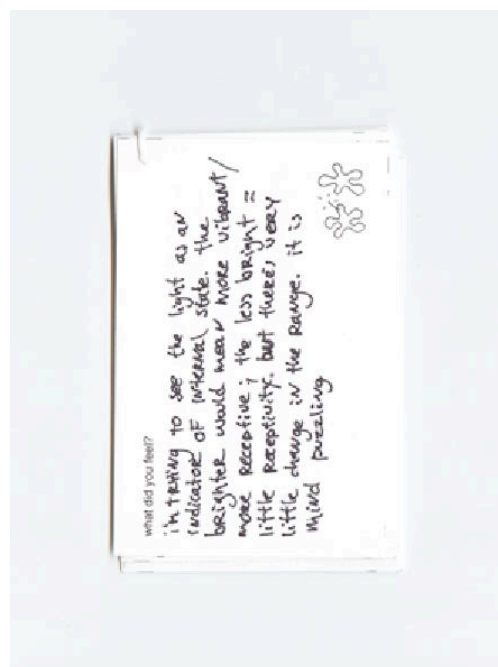 what did you feel?
i'm trying to see the light as an
indicator of internal state. the
brighter would mean more vibrant/
more receptive; the less bright =
little receptivity. but there's very
little change in the range. it is
mind puzzling